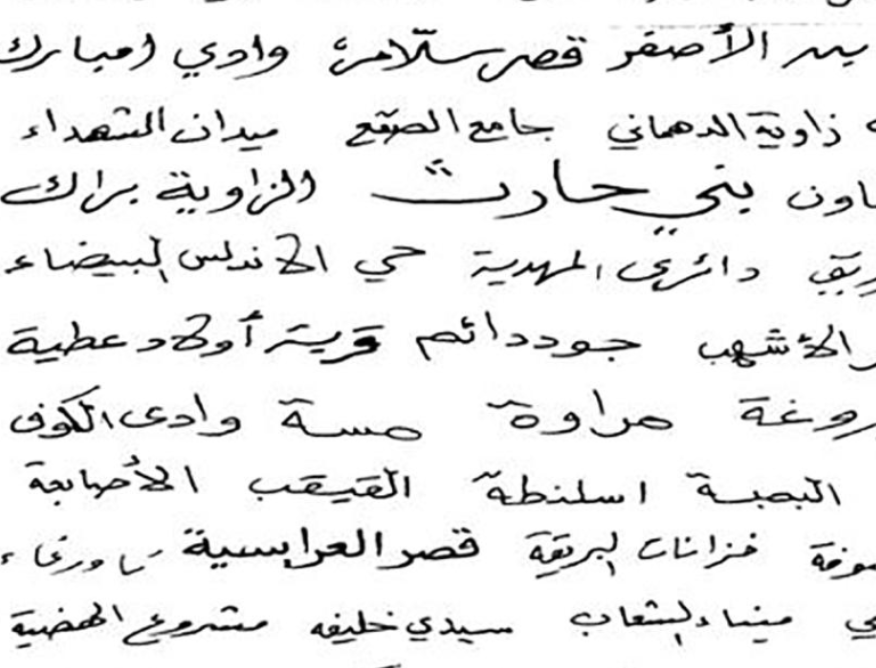 الأصفر قصر سلّامة وادي امبارك
زاوية الدهماني جامع الصقع ميدان الشهداء
بني حارث الزاوية براك
دائري المهدية حي الاندلس البيضاء
الأشهب جوددائم قرية أولاد عطية
مراوة مسة وادي الكوف
اسلنطة القيقب الأصابعة
خزانات البريقة قصر العرابسية
ميناء الشعاب سيدي خليفه مشروع الهضبة